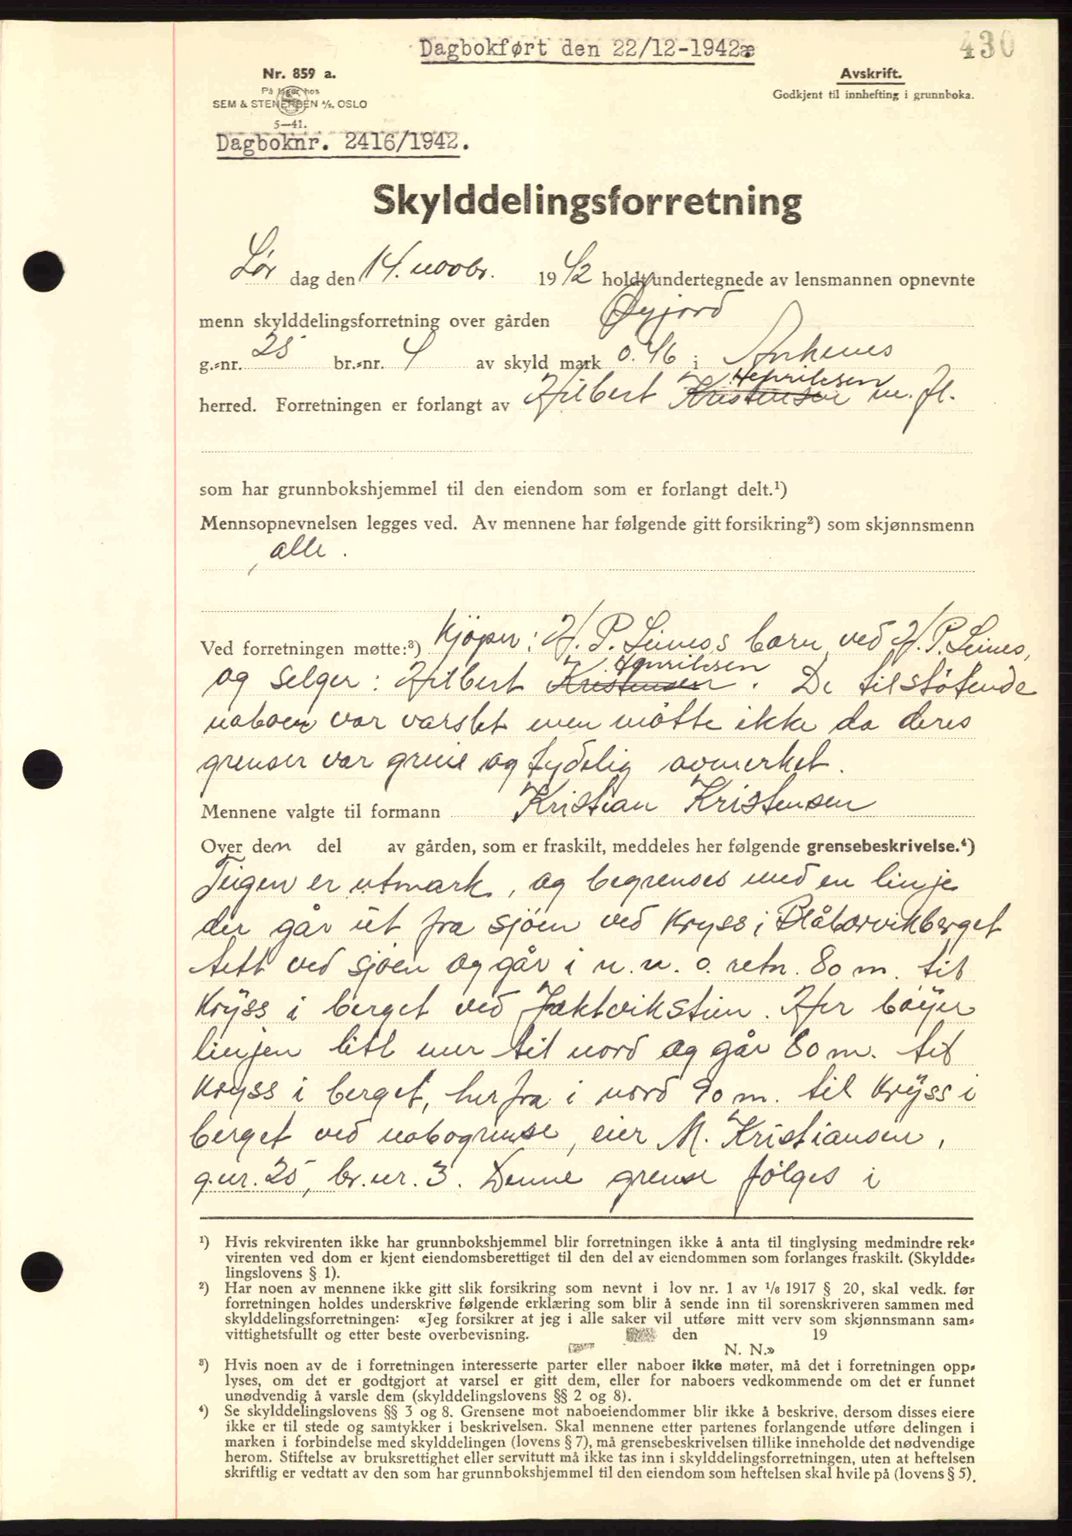 Dagbokført den 22/12-1942
430
Nr. 859 a.
På lager hos
SEM & STENERSEN A/S. OSLO
5—41.
Avskrift.
Godkjent til innhefting i grunnboka.
Dagboknr. 2416/1942.
Skylddelingsforretning
Lør dag den 14. novbr. 1942 holdt undertegnede av lensmannen opnevnte
menn skylddelingsforretning over gården Øyjord
g.=nr. 25 br.=nr. 4 av skyld mark 0.46 i Ankenes
Henriksen
herred. Forretningen er forlangt av Hilbert Kristensen m. fl.
som har grunnbokshjemmel til den eiendom som er forlangt delt.¹)
Mennsopnevnelsen legges ved. Av mennene har følgende gitt forsikring²) som skjønnsmenn
alle.
Ved forretningen møtte:³) Kjøper: H. P. Leines barn ved H. P. Leines,
Henriksen
og selger: Hilbert Kristensen. De tilstøtende
naboer var varslet men møtte ikke da deres
grenser var greie og tydelig avmerket.
Mennene valgte til formann Kristian Kristensen
Over den del av gården, som er fraskilt, meddeles her følgende grensebeskrivelse.⁴)
Teigen er utmark, og begrenses med en linje
der går ut fra sjøen ved kryss i Blåbærvikberget
tett ved sjøen og går i n. n. o. retn. 80 m. til
kryss i berget ved Jaktvikstien. Her bøyer
linjen litt mer til nord og går 80 m. til
kryss i berget, herfra i nord 90 m. til kryss i
berget ved nabogrense, eier M. Kristiansen,
g.nr. 25, br.nr. 3. Denne grense følges i
¹) Hvis rekvirenten ikke har grunnbokshjemmel blir forretningen ikke å anta til tinglysing medmindre rek=
virenten ved dom er kjent eiendomsberettiget til den del av eiendommen som forlanges fraskilt. (Skyldde=
lingslovens § 1).
²) Har noen av mennene ikke gitt slik forsikring som nevnt i lov nr. 1 av ¹/₆ 1917 § 20, skal vedk. før
forretningen holdes underskrive følgende erklæring som blir å sende inn til sorenskriveren sammen med
skylddelingsforretningen: «Jeg forsikrer at jeg i alle saker vil utføre mitt verv som skjønnsmann sam=
vittighetsfullt og etter beste overbevisning. den 19
N. N.»
³) Hvis noen av de i forretningen interesserte parter eller naboer ikke møter, må det i forretningen opp=
lyses, om det er godtgjort at varsel er gitt dem, eller for naboers vedkommende om det er funnet
unødvendig å varsle dem (skylddelingslovens §§ 2 og 8).
⁴) Se skylddelingslovens §§ 3 og 8. Grensene mot naboeiendommer blir ikke å beskrive, dersom disses eiere
ikke er til stede og samtykker i beskrivelsen. Skal mennene etter partenes forlangende utføre delingen i
marken i forbindelse med skylddelingen (lovens § 7), må grensebeskrivelsen tillike inneholde det nødvendige
herom. Stiftelse av bruksrettighet eller servitutt må ikke tas inn i skylddelingsforretningen, uten at heftelsen
skriftlig er vedtatt av den som har grunnbokshjemmel til den eiendom som heftelsen skal hvile på (lovens § 5).